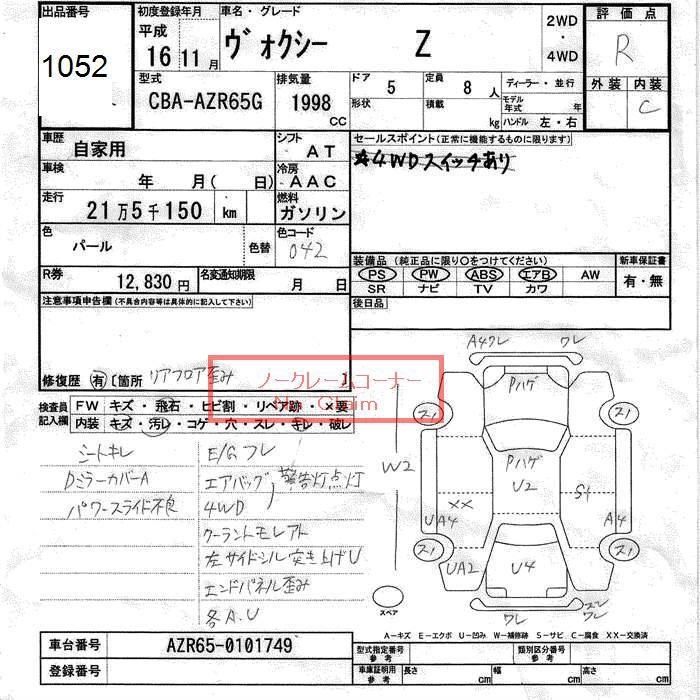 出品番号
1052
初度登録年月
平成
16 11 月
車名・グレード
ヴォクシー Z
2WD
・
4WD
評価点
R
外装 内装
C
型式
CBA-AZR65G
排気量
1998
CC
ドア 5
定員 8 人
形状
積載 kg
ディーラー・並行
モデル年式 年
ハンドル 左・右
車歴
自家用
シフト
AT
セールスポイント(正常に機能するものに限ります)
★4WDスイッチあり
車検
年 月( 日)
冷房
AAC
走行
21万5千150 km
燃料
ガソリン
色
パール
色替
色コード
042
装備品 (純正品に限り〇をつけてください)
PS PW ABS エアB AW
SR ナビ TV カワ
新車保証書
有・無
R券
12,830円
名変通知期限
月 日
後日品
注意事項申告欄(不具合内容等は具体的に記入して下さい)
修復歴 有 〔箇所 リアフロア歪み
ノークレームコーナー
No Claim
検査員
記入欄
FW キズ・飛石・ヒビ割・リペア跡・×要
内装 キズ・汚レ・コゲ・穴・スレ・キレ・破レ
シートキレ
DミラーカバーA
パワースライド不良
E/Gフレ
エアバッグ 警告灯点灯
4WD
クーラントモレアト
左サイドシル突き上げU
エンドパネル歪み
各A.U
A4ワレ ワレ
Pハゲ
スノ スノ
W2
Pハゲ
U2
××
S1
UA4
A4
スノ スノ
UA2
U4
ワレ
ワレ
スペア
A-キズ E-エクボ U-凹み W-補修跡 S-サビ C-腐食 XX-交換済
車台番号
AZR65-0101749
登録番号
型式指定番号
参考
類別区分番号
参考
車庫証明用
参考
長さ cm
幅 cm
高さ cm